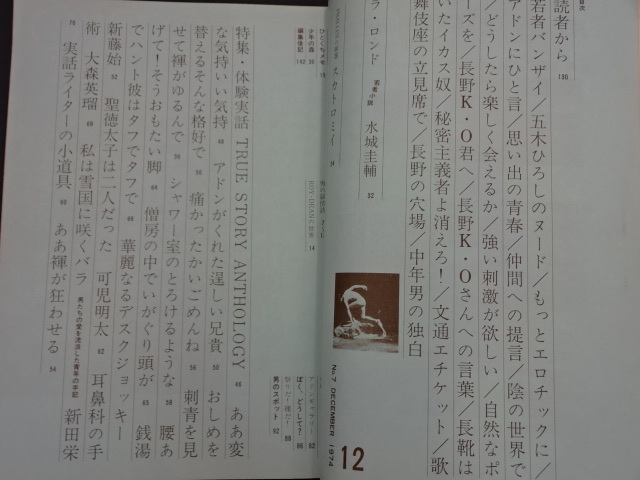 目次
読者から 130
若者バンザイ/五木ひろしのヌード/もっとエロチックに/
アドンにひと言/思い出の青春/仲間への提言/陰の世界で
/どうしたら楽しく会えるか/強い刺激が欲しい/自然なポ
ーズを/長野K・O君へ/長野K・Oさんへの言葉/長靴は
いたイカス奴/秘密主義者よ消えろ!/文通エチケット/歌
舞伎座の立見席で/長野の穴場/中年男の独白
ラ・ロンド 若者小説 水城圭輔 32
スカトロミイ
14
No.7 DECEMBER 1974
12
編集後記 142
アドンギャラリー 82
ぼく、どうして? 86
祭りだ!裸だ! 88
男のスポット 92
特集・体験実話 TRUE STORY ANTHOLOGY 46 ああ変
な気持いい気持 アドンがくれた逞しい兄貴 50 おしめを
替えるそんな格好で 痛かったかいごめんね 56 刺青を見
せて褌がゆるんで 56 シャワー室のとろけるような 58 腰あ
げて!そうおもたい脚 64 僧房の中でいがぐり頭が 65 銭湯
でハント彼はタフでタフで 68 華麗なるデスクジョッキー
新藤始 52 聖徳太子は二人だった 可児明太 62 耳鼻科の手
術 大森英瑠 69 私は雪国に咲くバラ 男たちの愛を流浪した青年の手記 新田栄
70 実話ライターの小道具 60 ああ褌が狂わせる 54